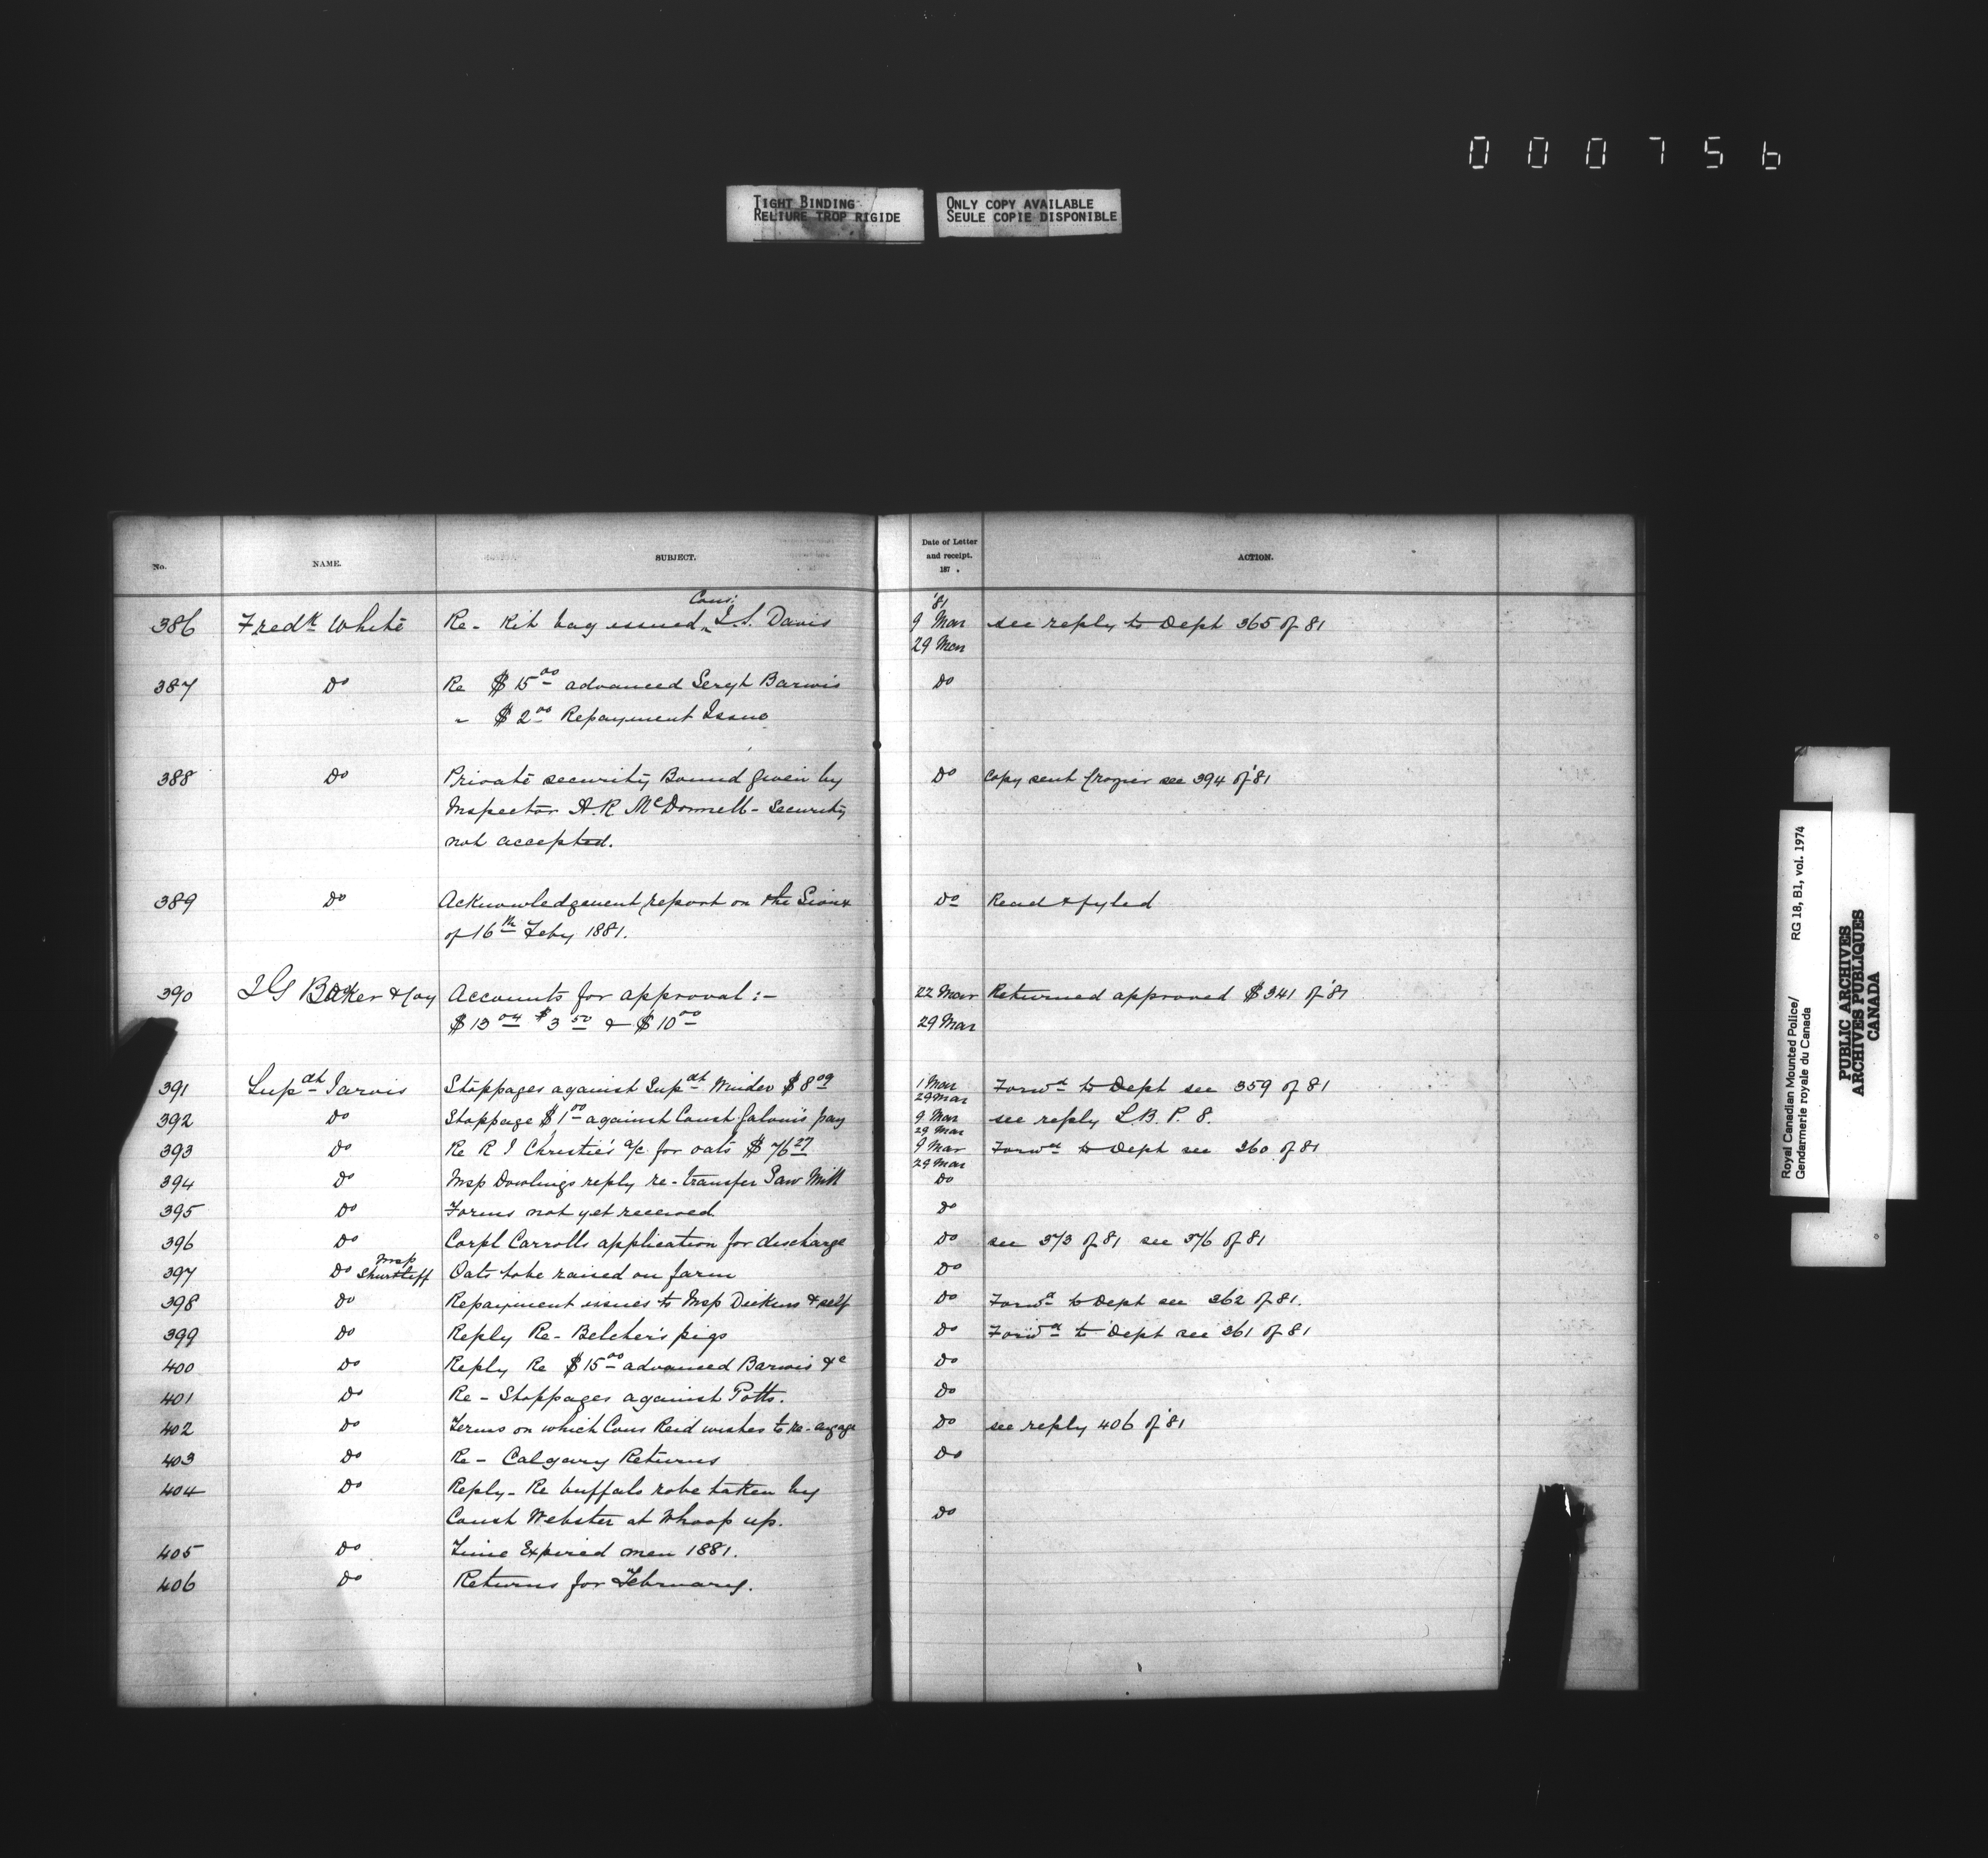 000756
TIGHT BINDING
RELIURE TROP RIGIDE
ONLY COPY AVAILABLE
SEULE COPIE DISPONIBLE
No. NAME. SUBJECT. Date of Letter and receipt. 187 . ACTION.
386 Fredk White Re - Kit bag issued Cons: I.S. Davis '81 9 Mar see reply to Dept 365 of 81
29 Mar
387 Do Re $15.00 advanced Sergt Barwis Do
" $2.00 Repayment Issue
388 Do Private security Bound given by Do Copy sent Crozier see 394 of '81
Inspector A.R McDonnell - Security
not accepted.
389 Do Acknowledgement report on the Sioux Do Read & fyled
of 16th Feby 1881.
390 I G Baker & Coy Accounts for approval :- 22 Mar Returned approved $341 of '81
$13.04 $3.50 & $10.00 29 Mar
391 Supdt Jarvis Stoppages against Supdt Winder $8.09 1 Mar Forwd to Dept see 359 of 81
29 Mar
392 Do Stoppage $1.00 against Const pay 9 Mar see reply L.B. P. 8.
29 Mar
393 Do Re R I Christie's a/c for oats $76.27 9 Mar Forwd to Dept see 360 of 81
29 Mar
394 Do Insp Dowlings reply re-transfer Saw Mill Do
395 Do Forms not yet received Do
396 Do Corpl Carrolls application for discharge Do see 373 of 81 see 376 of 81
397 Do Insp Shurtleff Oats to be raised on farm Do
398 Do Repayment issues to Insp Dickens & self Do Forwd to Dept see 362 of 81.
399 Do Reply Re - Belcher's pigs Do Forwd to Dept see 361 of 81
400 Do Reply Re $15.00 advanced Barwis &c Do
401 Do Re - Stoppages against Potts. Do
402 Do Terms on which Cons Reid wishes to re-engage Do see reply 406 of '81
403 Do Re - Calgary Returns Do
404 Do Reply - Re buffalo robe taken by
Const Webster at Whoop up. Do
405 Do Time Expired men 1881.
406 Do Returns for February.
Royal Canadian Mounted Police/ RG 18, B1, vol. 1974
Gendarmerie royale du Canada
PUBLIC ARCHIVES
ARCHIVES PUBLIQUES
CANADA